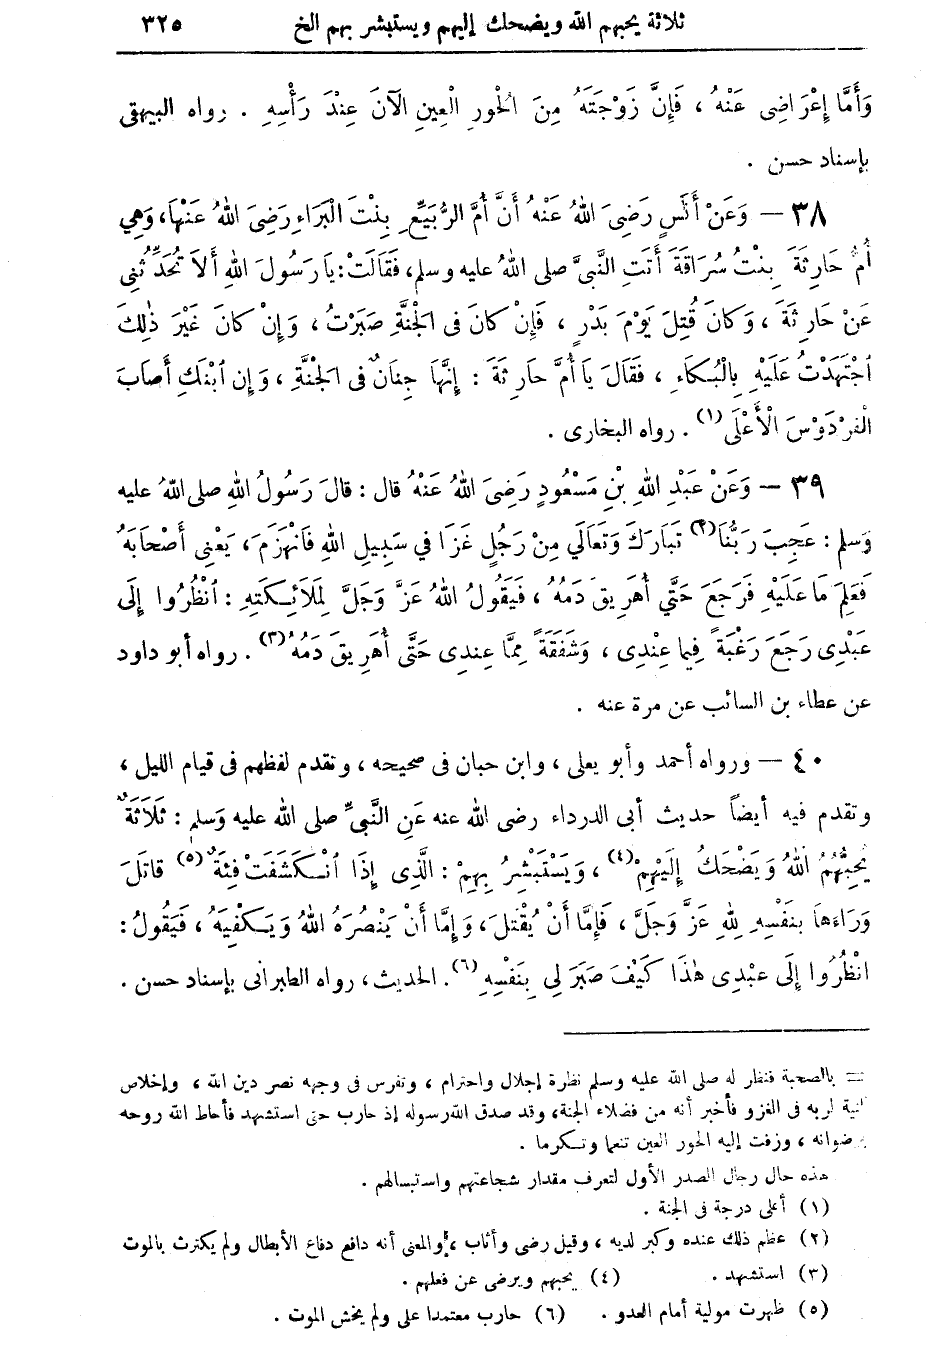 ثلاثة يحبهم الله ويضحك إليهم ويستبشر بهم الخ ٣٢٥
وَأَمَّا إِعْرَاضِى عَنْهُ ، فَإِنَّ زَوْجَتَهُ مِنَ الْحُورِ الْعِينِ الآنَ عِنْدَ رَأْسِهِ . رواه البيهقى
بإسناد حسن .
٣٨ — وَعَنْ أَنَسٍ رَضِىَ اللهُ عَنْهُ أَنَّ أُمَّ الرُّبَيِّعِ بِنْتَ الْبَرَاءِ رَضِىَ اللهُ عَنْهَا، وَهِيَ
أُمُّ حَارِثَةَ بِنْتُ سُرَاقَةَ أَتَتِ النَّبِيَّ صلى اللهُ عليه وسلم، فَقَالَتْ: يَا رَسُولَ اللهِ أَلاَ تُحَدِّثُنِى
عَنْ حَارِثَةَ ، وَكَانَ قُتِلَ يَوْمَ بَدْرٍ ، فَإِنْ كَانَ فى الْجَنَّةِ صَبَرْتُ ، وَإِنْ كَانَ غَيْرَ ذٰلِكَ
اجْتَهَدْتُ عَلَيْهِ بِالْبُكَاءِ ، فَقَالَ يَا أُمَّ حَارِثَةَ : إِنَّهَا جِنَانٌ فى الْجَنَّةِ ، وَإِن ابْنَكِ أَصَابَ
الْفِرْدَوْسَ الْأَعْلَى (١) . رواه البخارى .
٣٩ — وَعَنْ عَبْدِ اللهِ بْنِ مَسْعُودٍ رَضِىَ اللهُ عَنْهُ قال : قالَ رَسُولُ اللهِ صلى اللهُ عليه
وَسلم : عَجِبَ رَبُّنَا (٢) تَبَارَكَ وَتَعَالَي مِنْ رَجُلٍ غَزَا فِي سَبِيلِ اللهِ فَانْهَزَمَ، يَعْنِى أَصْحَابَهُ
فَعَلِمَ مَا عَلَيْهِ فَرَجَعَ حَتَّي أُهَرِيقَ دَمُهُ ، فَيَقُولُ اللهُ عَزَّ وَجَلَّ لِمَلَائِكَتِهِ : انْظُرُوا إِلَى
عَبْدِى رَجَعَ رَغْبَةً فِيمَا عِنْدِى ، وَشَفَقَةً مِمَّا عِنْدِى حَتَّى أُهَرِيقَ دَمُهُ (٣) . رواه أبو داود
عن عطاء بن السائب عن مرة عنه .
٤٠ — ورواه أحمد وأبو يعلى ، وابن حبان فى صحيحه ، وتقدم لفظهم فى قيام الليل ،
وتقدم فيه أيضاً حديث أبى الدرداء رضى الله عنه عَنِ النَّبِيِّ صلى الله عليه وَسلم : ثَلَاثَةٌ
يُحِبُّهُمُ اللهُ وَيَضْحَكُ إِلَيْهِمْ (٤) ، وَيَسْتَبْشِرُ بِهِمْ : الَّذِى إِذَا انْكَشَفَتْ فِئَةٌ (٥) قاتَلَ
وَرَاءَهَا بِنَفْسِهِ لِلهِ عَزَّ وَجَلَّ ، فَإِمَّا أَنْ يُقْتَلَ، وَإِمَّا أَنْ يَنْصُرَهُ اللهُ وَيَكْفِيَهُ ، فَيَقُولُ :
انْظُرُوا إِلَى عَبْدِى هٰذَا كَيْفَ صَبَرَ لِي بِنَفْسِهِ (٦) . الحديث، رواه الطبرانى بإسناد حسن .
= بالصحبة فنظر له صلى الله عليه وسلم نظرة إجلال واحترام ، وتفرس فى وجهه نصر دين الله ، وإخلاص
النية لربه فى الغزو فأخبر أنه من فضلاء الجنة، وقد صدق الله رسوله إذ حارب حتى استشهد فأحاط الله روحه
برضوانه ، وزفت إليه الحور العين تنعما وتكرما .
هذه حال رجال الصدر الأول لتعرف مقدار شجاعتهم واستبسالهم .
(١) أعلى درجة فى الجنة .
(٢) عظم ذلك عنده وكبر لديه ، وقيل رضى وأثاب ، والمعنى أنه دافع دفاع الأبطال ولم يكترث بالموت
(٣) استشهد . (٤) يحبهم ويرضى عن فعلهم .
(٥) ظهرت مولية أمام العدو . (٦) حارب معتمدا على ولم يخش الموت .